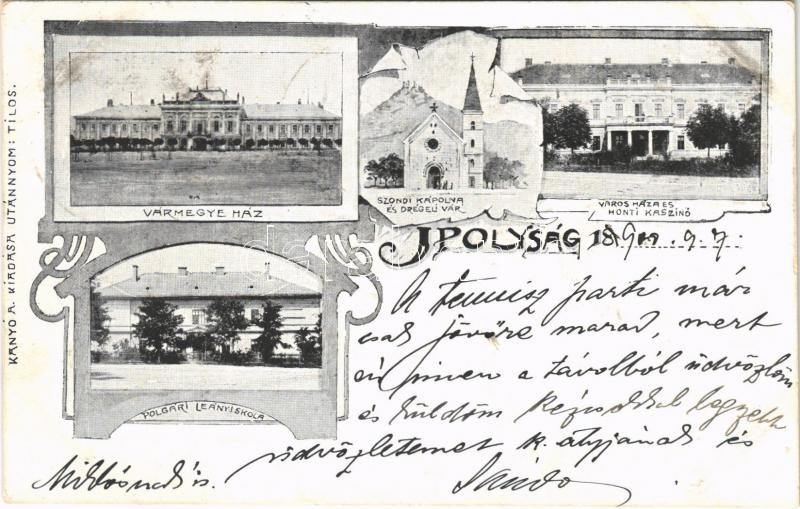 KÁNYÓ A. KIADÁSA UTÁNNYOM: TILOS.
VÁRMEGYE HÁZ
SZONDI KÁPOLNA
ÉS DRÉGELI VÁR
VÁROS HÁZA ÉS
HONTI KASZINÓ
POLGÁRI LEÁNYISKOLA
IPOLYSÁG 189
A tennisz parti már
csak jövőre marad, mert
én innen a távolból üdvözlöm
és küldöm legszebb
üdvözletemet k. atyjának és
Miklósnak is.
Sándor